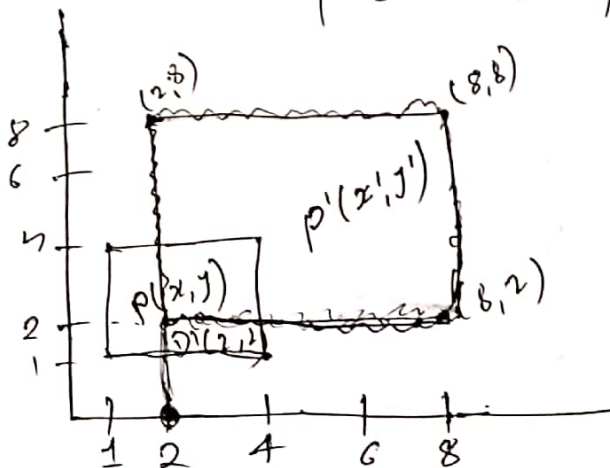 (2,8) (8,8)
8
6
p'(x',y')
4
p(x,y)
(8,2)
2
1
1 2 4 6 8